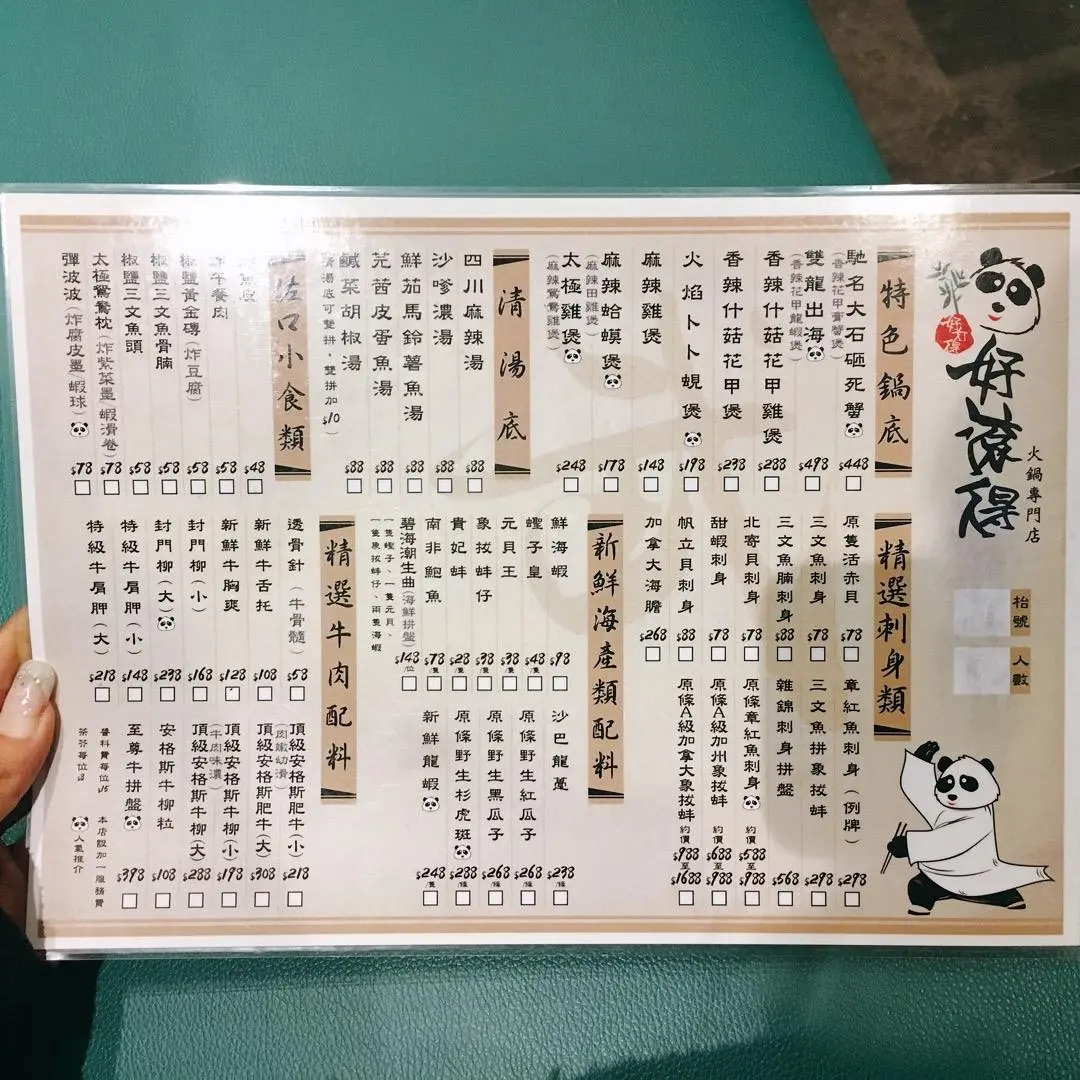 好滾得
火鍋專門店
好好得
枱號
人數
特色鍋底
馳名大石砸死蟹
(香辣花甲膏蟹煲)
$448
雙龍出海
(香辣花甲龍蝦煲)
$498
香辣什菇花甲雞煲
$288
香辣什菇花甲煲
$238
火焰卜卜蜆煲
$198
麻辣雞煲
$148
麻辣蛤蟆煲
(麻辣田雞煲)
$178
太極雞煲
(麻辣鴛鴦雞煲)
$248
清湯底
四川麻辣湯
$88
沙嗲濃湯
$88
鮮茄馬鈴薯魚湯
$88
芫茜皮蛋魚湯
$88
鹹菜胡椒湯
$88
清湯底可雙拼，雙拼加$10
小食類
$48
午餐肉
$58
椒鹽黃金磚(炸豆腐)
$58
椒鹽三文魚骨腩
$58
椒鹽三文魚頭
$58
太極鴛鴦枕(炸紫菜墨/蝦滑卷)
$78
彈波波(炸腐皮墨/蝦球)
$78
精選刺身類
原隻活赤貝
$78
三文魚刺身
$78
三文魚腩刺身
$88
北寄貝刺身
$78
甜蝦刺身
$78
帆立貝刺身
$88
加拿大海膽
$268
章紅魚刺身(例牌)
$298
三文魚拼象拔蚌
$298
雜錦刺身拼盤
$568
原條章紅魚刺身
約價$588至$988
原條A級加州象拔蚌
約價$688至$988
原條A級加拿大象拔蚌
約價$988至$1688
新鮮海產類配料
鮮海蝦
$98
蟶子皇
$48/隻
元貝王
$38/隻
象拔蚌仔
$38/隻
貴妃蚌
$28/隻
南非鮑魚
$78/隻
碧海潮生曲(海鮮拼盤)
$148/位
(一隻蟶子、一隻元貝、一隻象拔蚌仔、兩隻海蝦)
沙巴龍躉
$238/條
原條野生紅瓜子
$268/條
原條野生黑瓜子
$268/條
原條野生杉虎斑
$288/條
新鮮龍蝦
$248/隻
精選牛肉配料
透骨針(牛骨髓)
$58
新鮮牛舌托
$108
新鮮牛胸爽
$128
封門柳(小)
$168
封門柳(大)
$298
特級牛肩胛(小)
$148
特級牛肩胛(大)
$218
頂級安格斯肥牛(小)
(肉嫩幼滑)
$218
頂級安格斯肥牛(大)
$308
頂級安格斯牛柳(小)
(牛肉味濃)
$198
頂級安格斯牛柳(大)
$288
安格斯牛柳粒
$108
至尊牛拼盤
$398
醬料費每位$15
本店設加一服務費
茶芥每位$8
人氣推介